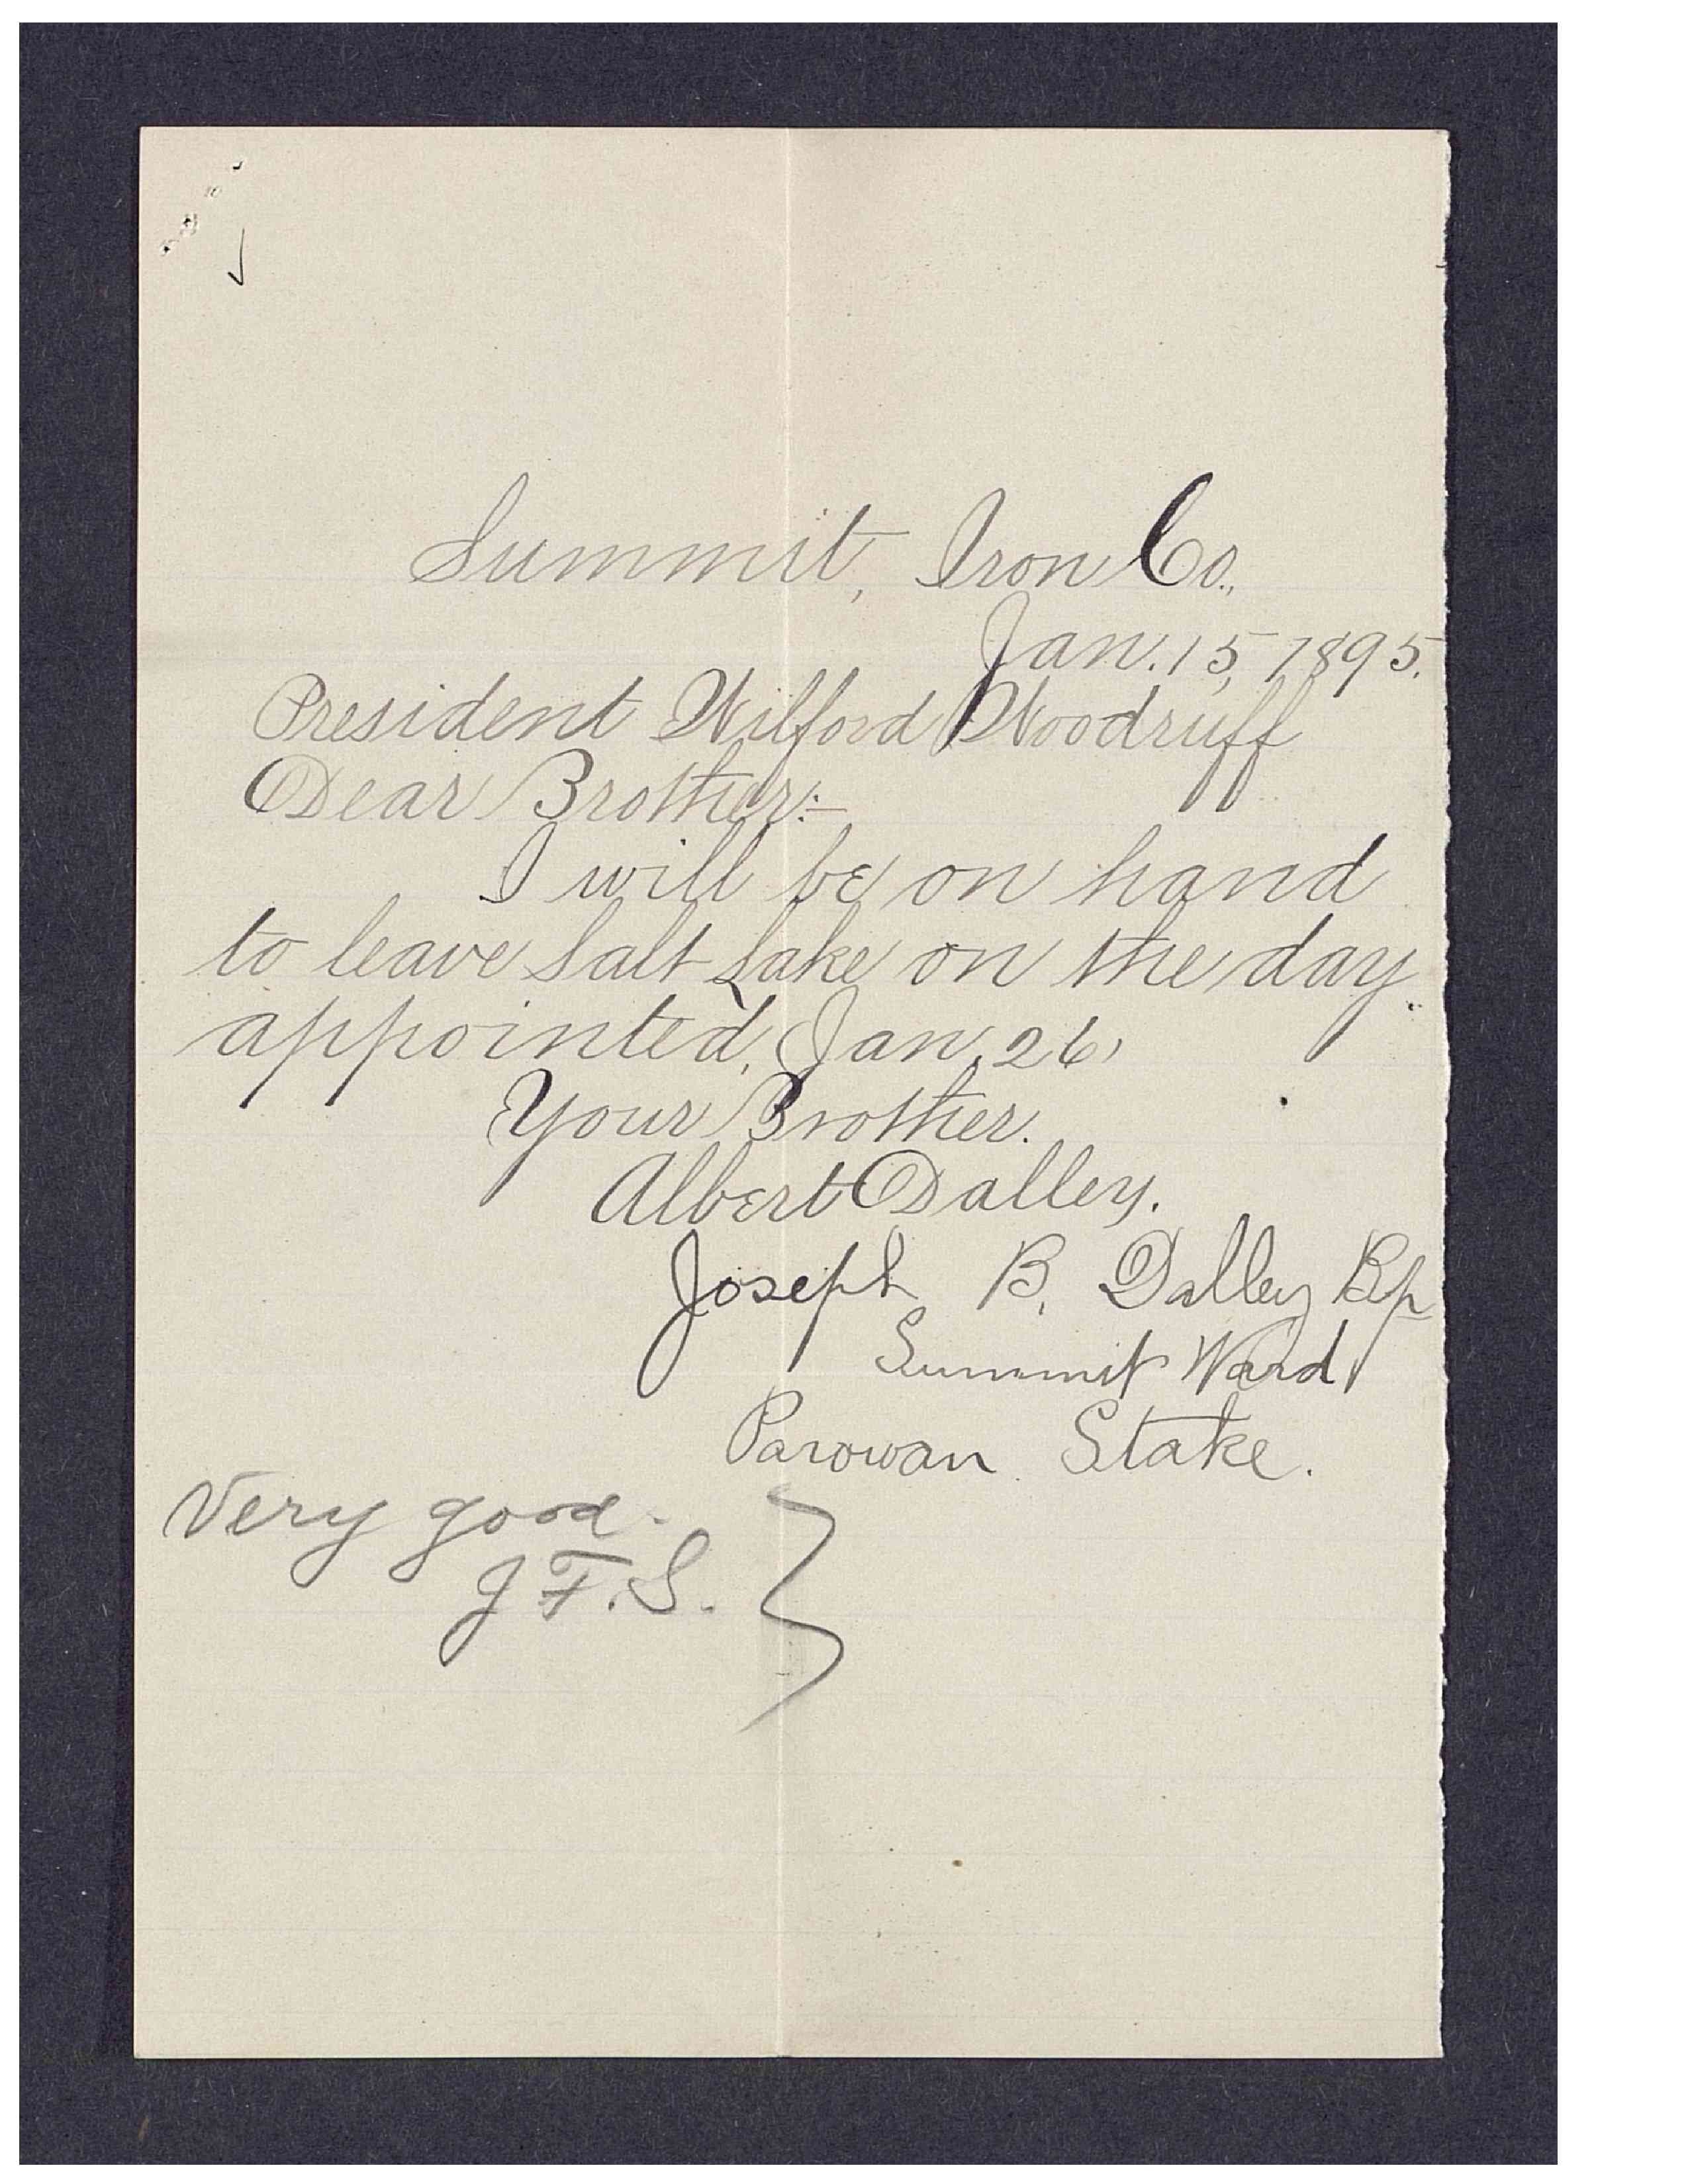 Summit, Iron Co.,
Jan. 15, 1895.
President Wilford Woodruff
Dear Brother:-
I will be on hand
to leave Salt Lake on the day
appointed, Jan. 26,
Your Brother.
Albert Dalley.
Joseph B. Dalley Bp
Summit Ward
Parowan Stake.
Very good.
J F. S.